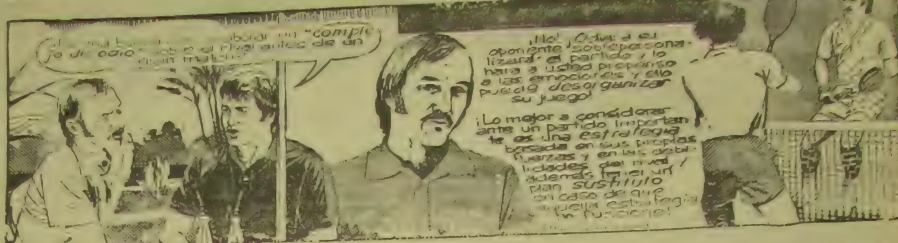 un "comple-
jo de odio" sobre el rival antes de un
gran match?
¡No! Odiar a su
oponente sobrepersona-
lizará el partido y lo
hará a usted propenso
a las emociones y ello
puede desorganizar
su juego!
¡Lo mejor a considerar
ante un partido importan
te es una estrategia
basada en sus propias
fuerzas y en las debi-
lidades del rival y
además tener un
plan sustituto
en caso de que
aquella estrategia
no funcione!